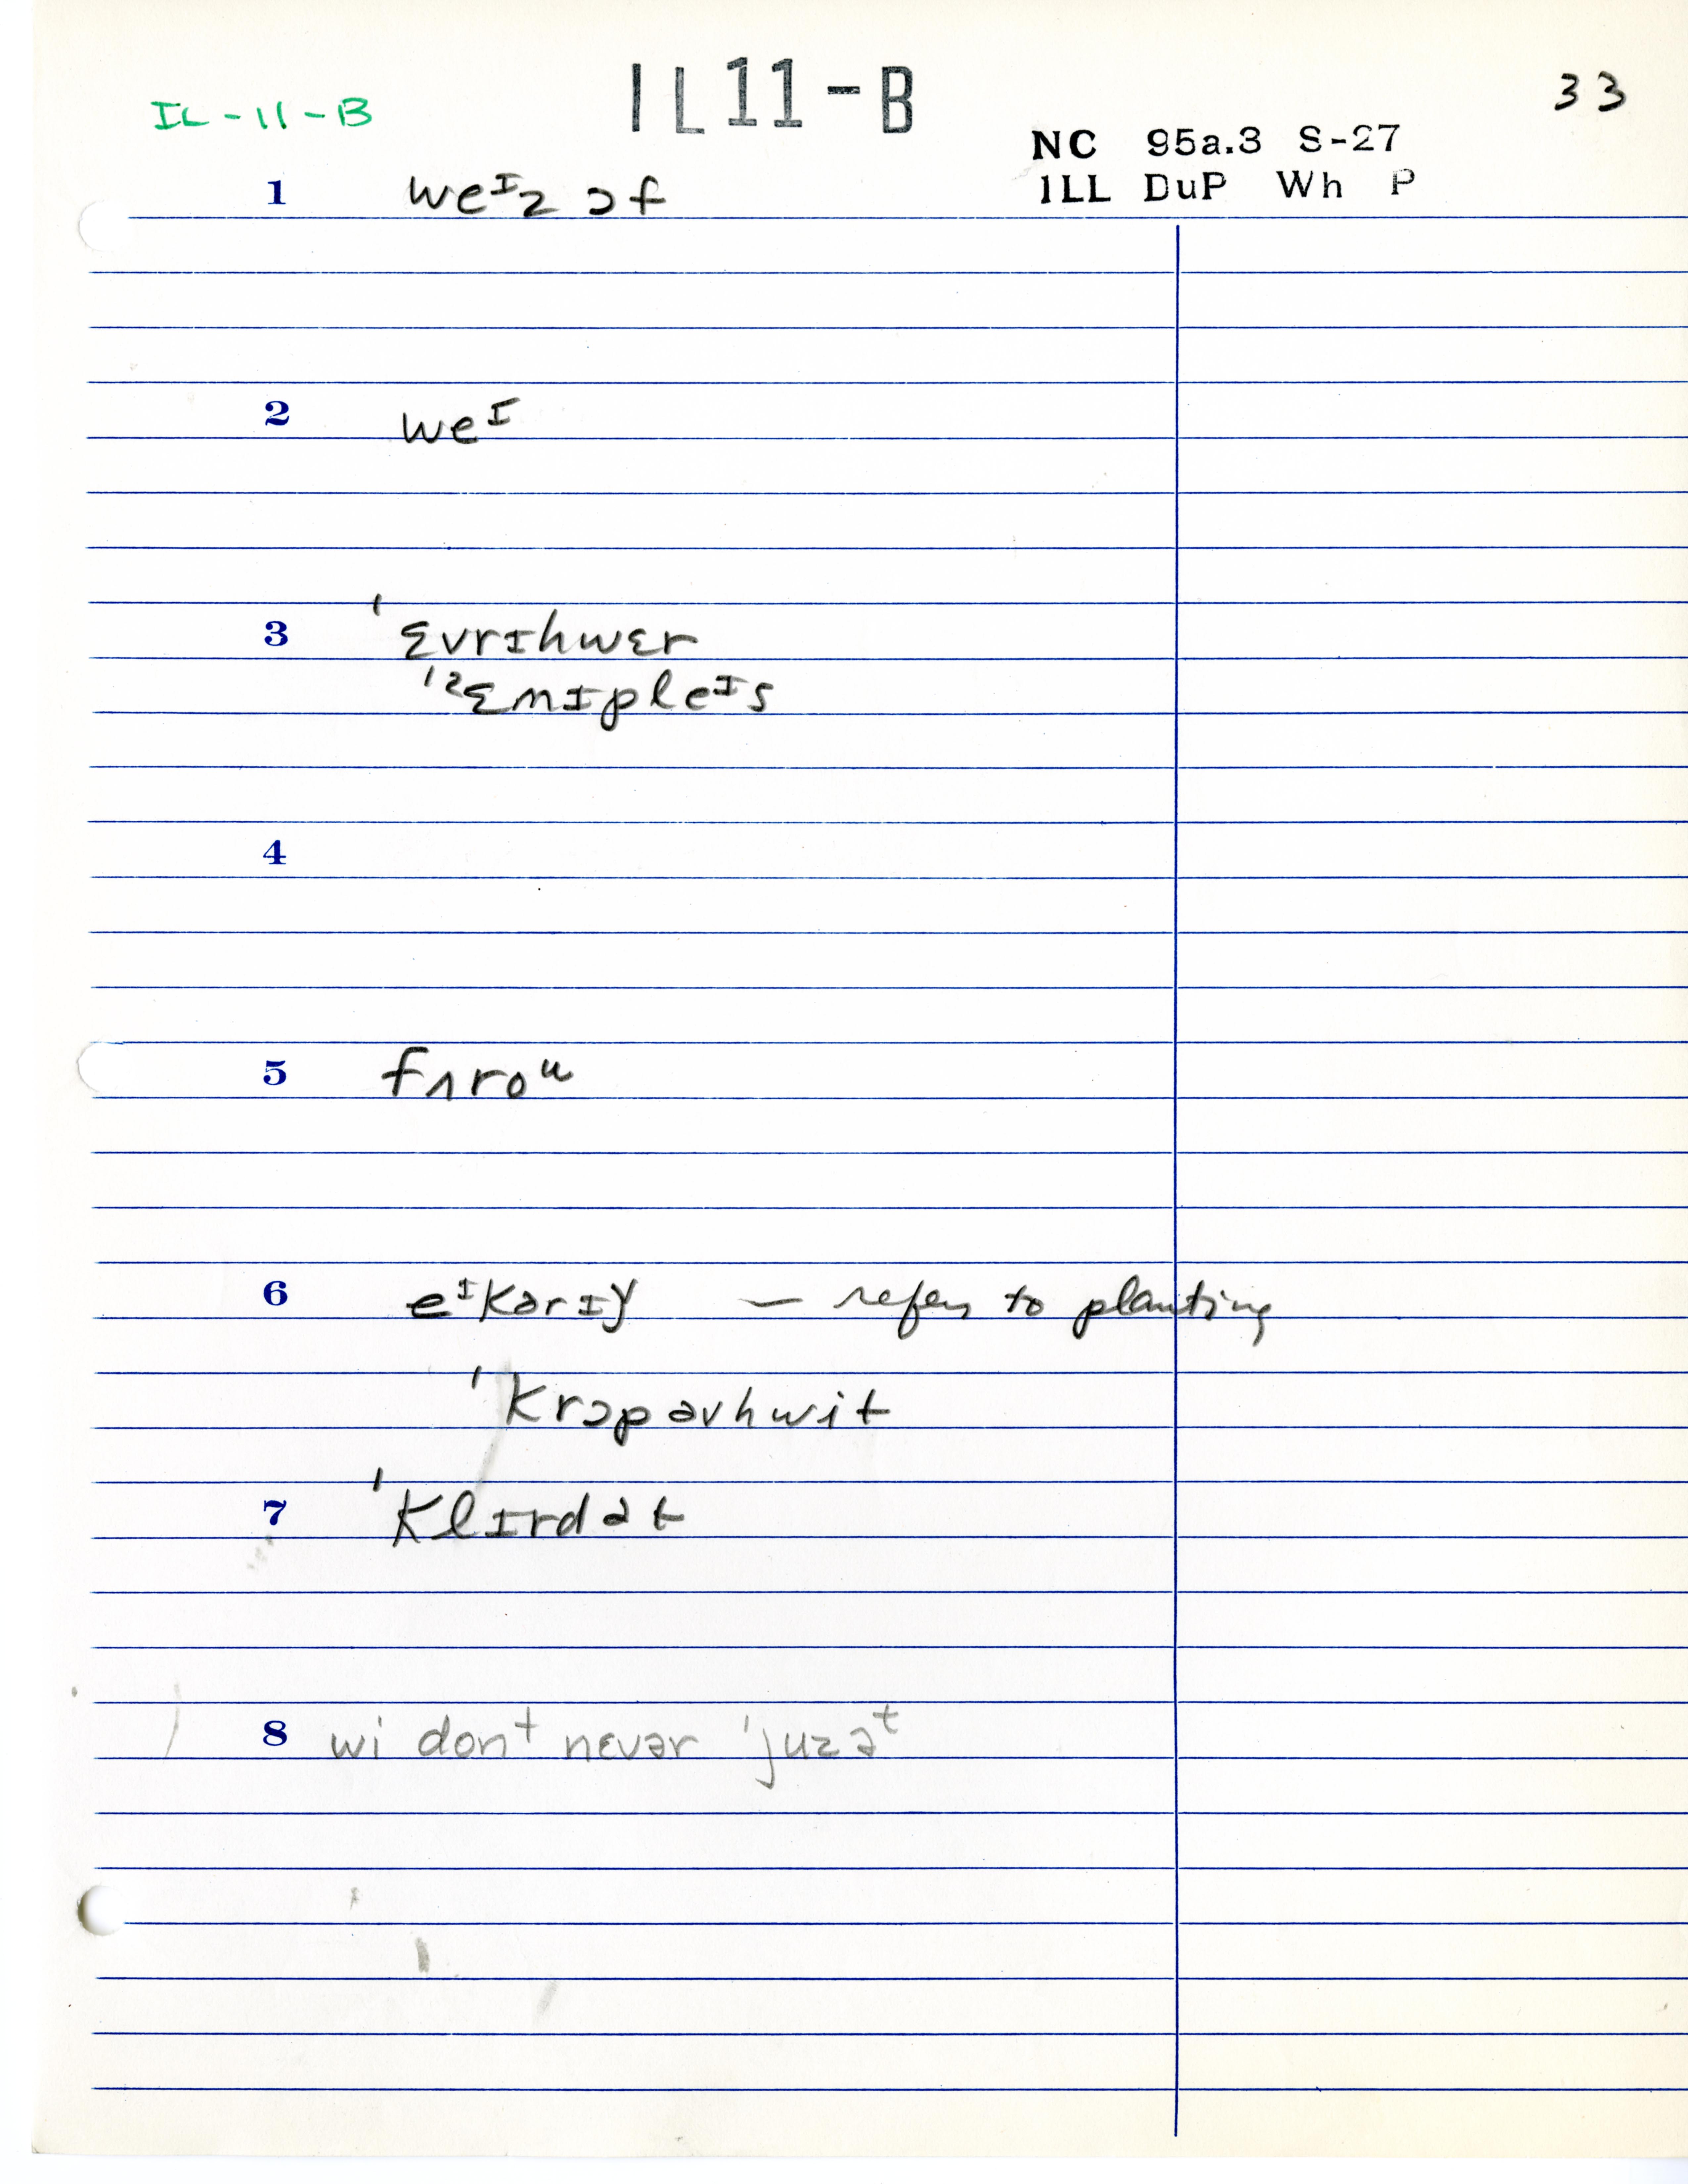 IL-11-B IL11-B 33
NC 95a.3 S-27
ILL DuP Wh P
1 weᴵz ɔf
2 weᴵ
3 ˈɛvrɪhwɛr
ˈɛnɪpleᴵs
4
5 fʌroᵘ
6 eᴵkərɪy — refers to planting
ˈkrɔpəvhwit
7 ˈklɪrdət
8 wi donᵗ nɛvər ˈjuzəᵗ